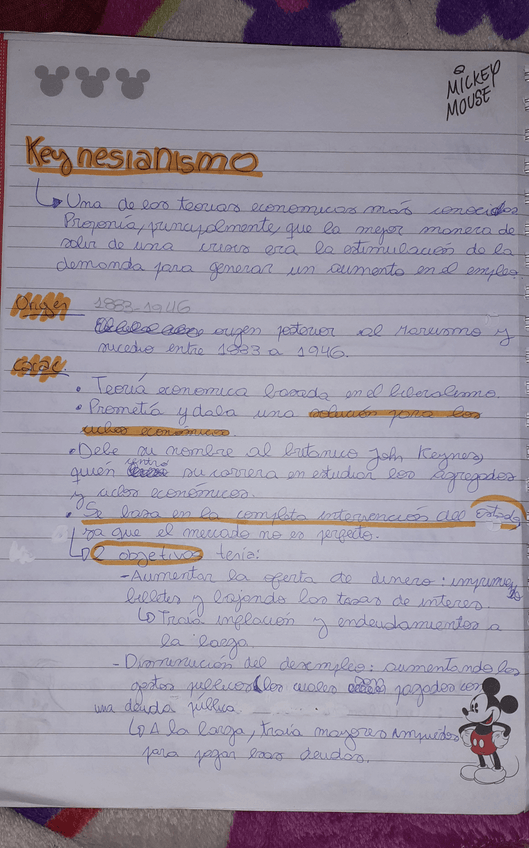 MICKEY
MOUSE
Keynesianismo
Una de las teorias economicas más conocidas
Proponía, principalmente, que la mejor manera de
salir de una crisis era la estimulación de la
demanda para generar un aumento en el empleo.
Origen 1883-1946
origen posterior al Marxismo y
sucedio entre 1983 a 1946.
Carac
• Teoría economica basada en el liberalismo.
• Prometía y daba una solución para los
ciclos economicos.
• Debe su nombre al britanico John Keynes,
quién centro su carrera en estudiar los agregados
y ciclos económicos.
• Se basa en la completa intervención del Estado
ya que el mercado no es perfecto.
2 objetivos tenia:
- Aumentar la oferta de dinero: imprimiendo
billetes y bajando las tasas de interes.
Traía inflación y endeudamientos a
la larga
- Disminución del desempleo: aumentando los
gastos publicos (los cuales pagados con
una deuda pública.
A la larga, traía mayores impuestos
para pagar esas deudas.